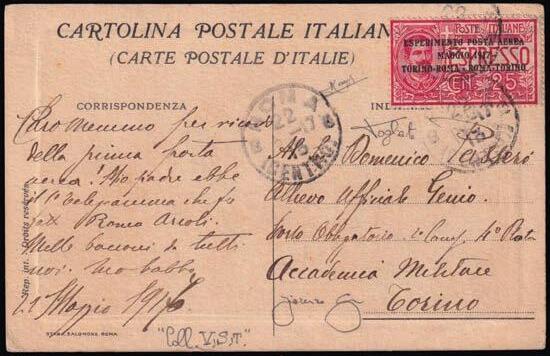 CARTOLINA POSTALE ITALIANA
(CARTE POSTALE D'ITALIE)
POSTE ITALIANE
ESPERIMENTO POSTA AEREA
MAGGIO 1917
TORINO-ROMA · ROMA-TORINO
ESPRESSO
CENT. 25
CORRISPONDENZA
ROMA
22
17
(CENTRO)
Caro Memmo per ricordo
della prima posta
aerea! Tuo padre ebbe
il 1° telegramma che fo
Roma
Mille baccioni da tutti
noi. tuo babbo
21 Maggio 1917
Al
Domenico
Allievo Ufficiale Genio
Corso Obbligatorio
Accademia Militare
Torino
Rep. int. Droits reservés
STAB. SALOMONE, ROMA
"Coll. V.S.T."